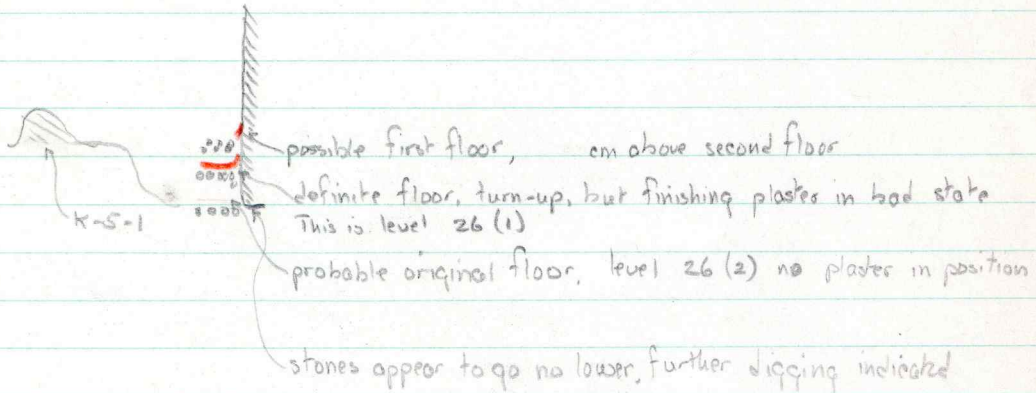 possible first floor, cm above second floor
definite floor, turn-up, but finishing plaster in bad state
This is level 26 (1)
K-5-1
probable original floor, level 26 (2) no plaster in position
stones appear to go no lower, further digging indicated